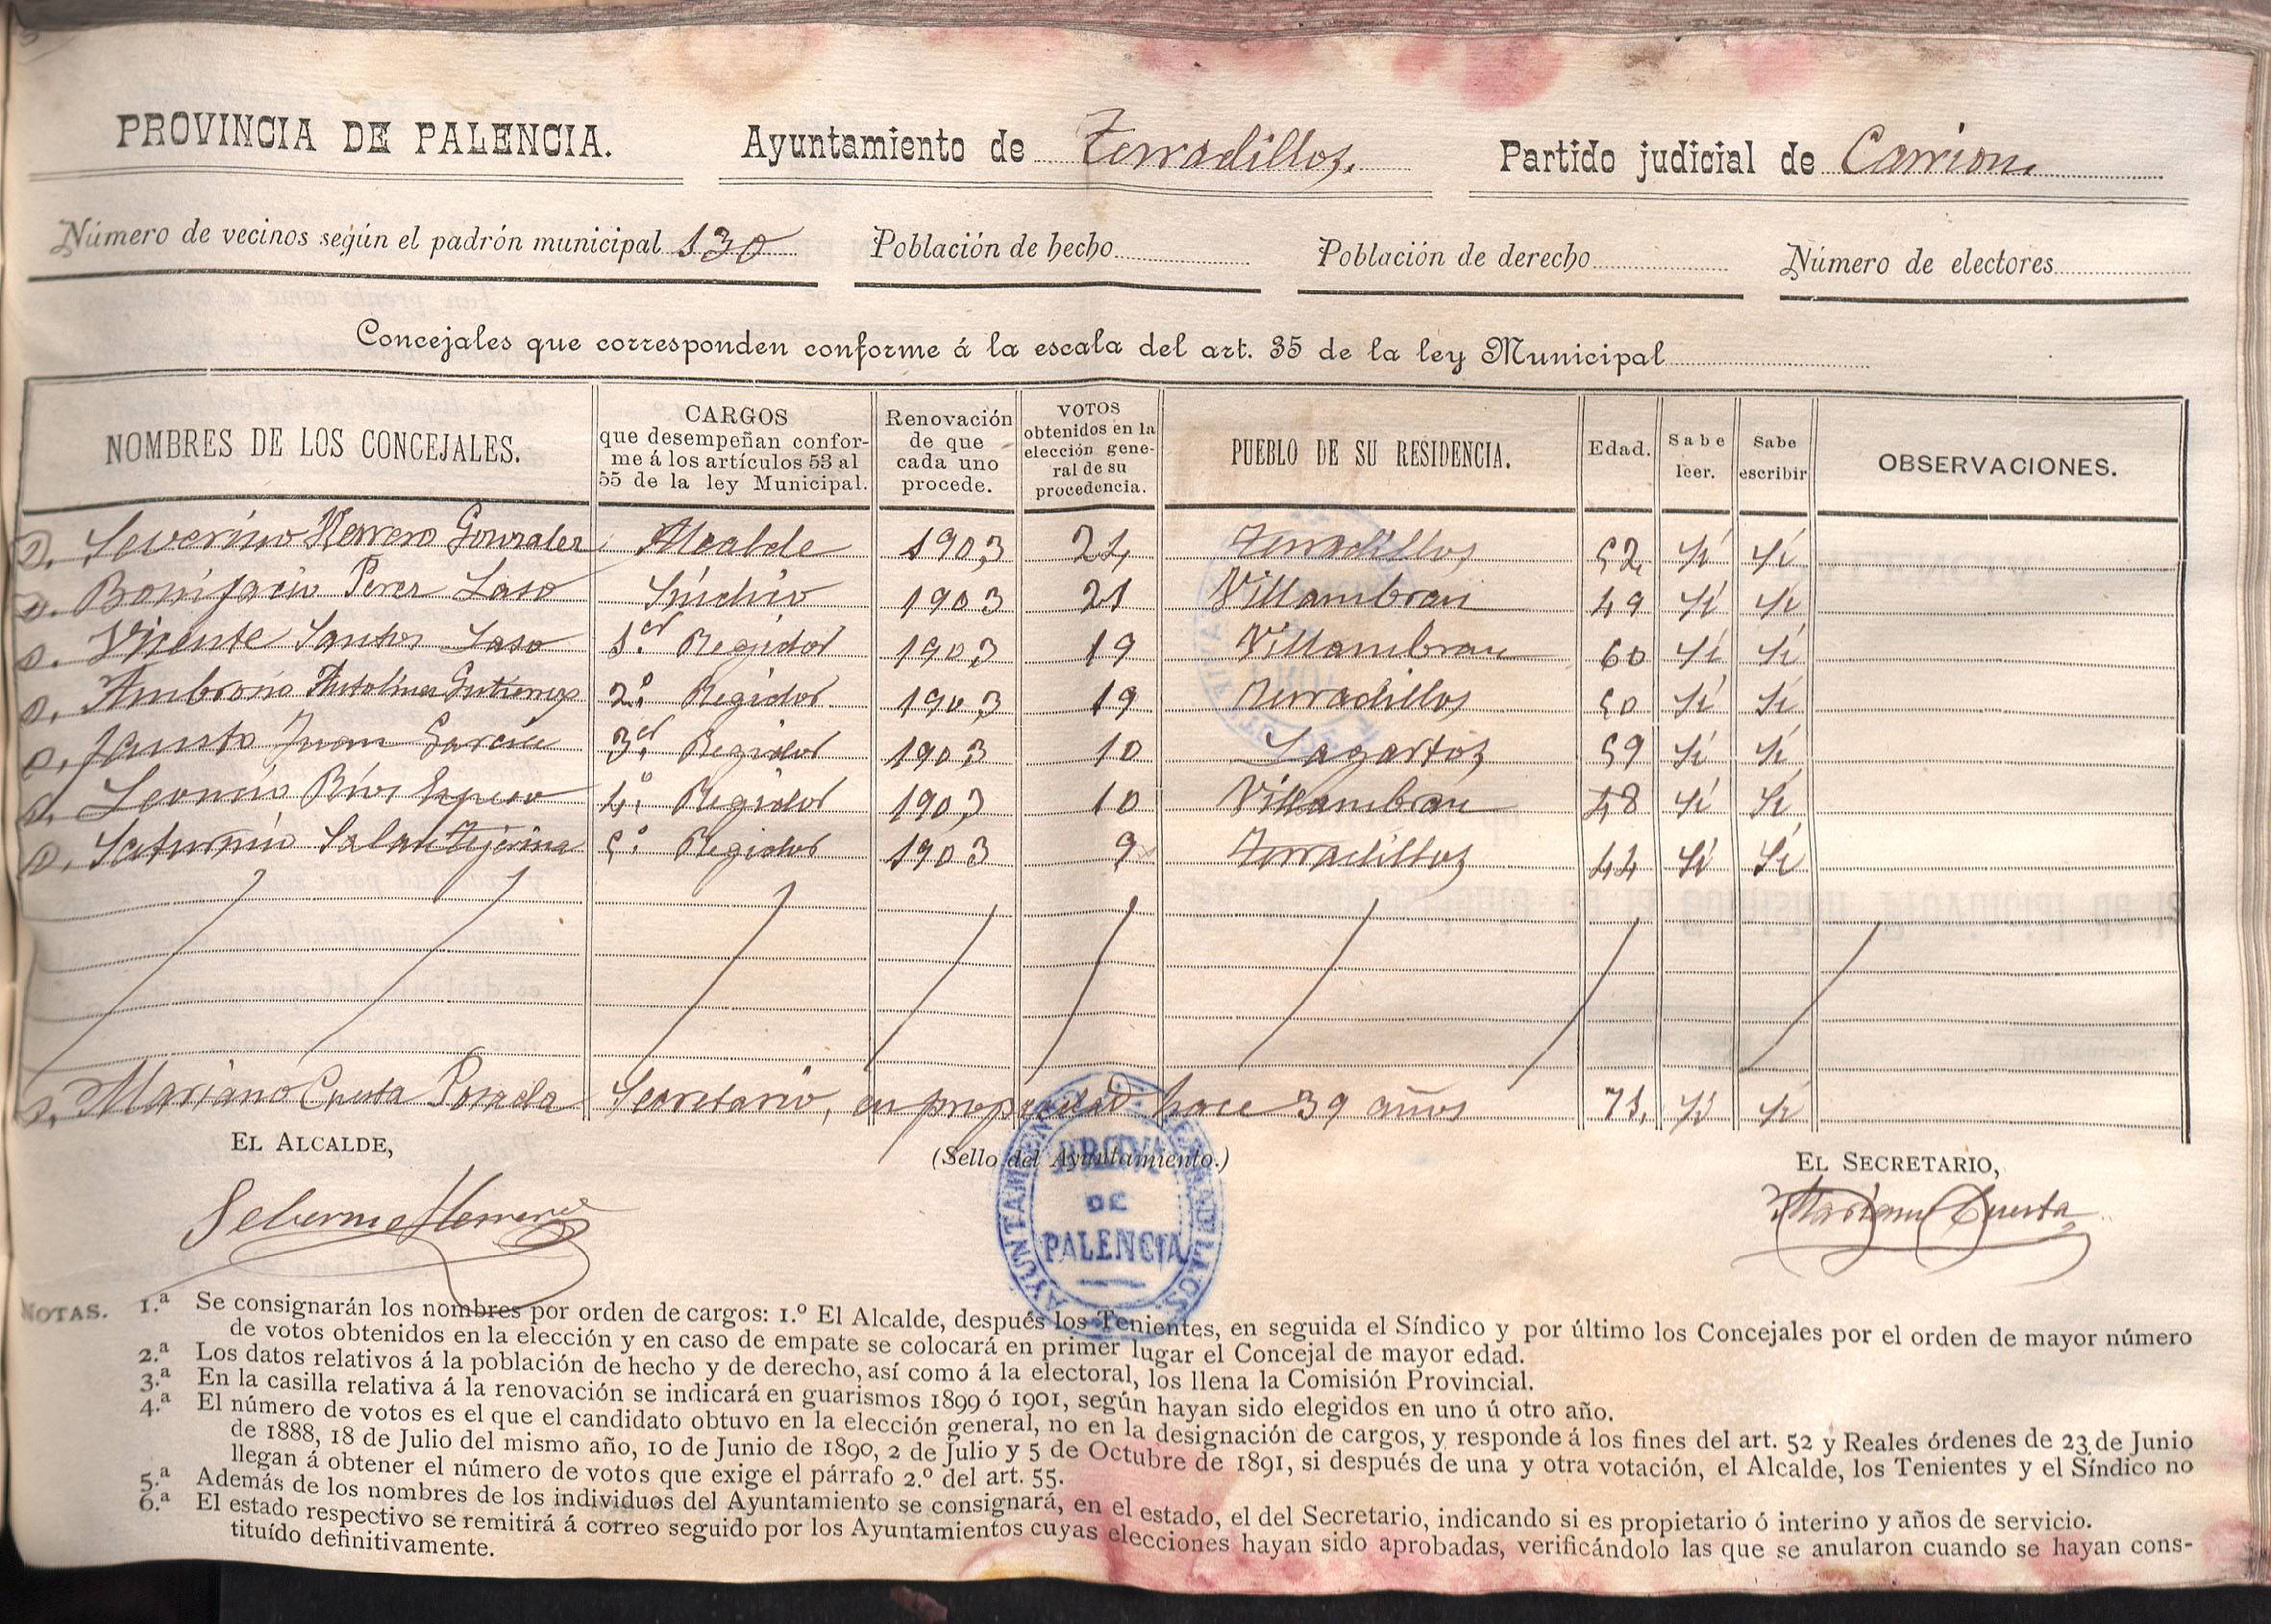 PROVINCIA DE PALENCIA. Ayuntamiento de Terradillos. Partido judicial de Carrion.
Número de vecinos según el padrón municipal 130 Población de hecho Población de derecho Número de electores
Concejales que corresponden conforme á la escala del art. 35 de la ley Municipal
NOMBRES DE LOS CONCEJALES. CARGOS que desempeñan conforme á los artículos 53 al 55 de la ley Municipal. Renovación de que cada uno procede. VOTOS obtenidos en la elección general de su procedencia. PUEBLO DE SU RESIDENCIA. Edad. Sabe leer. Sabe escribir OBSERVACIONES.
D. Severino Herrero Gonzalez Alcalde 1903 24 Terradillos 52 Si Si
D. Bonifacio Perez Laso Síndico 1903 21 Villambran 49 Si Si
D. Vicente Santos Laso 1.er Regidor 1903 19 Villambran 60 Si Si
D. Ambrosio Antolinez Gutierrez 2.º Regidor 1903 19 Terradillos 50 Si Si
D. Fausto Juan Garcia 3.er Regidor 1903 10 Lagartos 59 Si Si
D. Leoncio Rios Espeso 4.º Regidor 1903 10 Villambran 48 Si Si
D. Saturnino Salan Tejerina 5.º Regidor 1903 9 Terradillos 44 Si Si
D. Mariano Cuesta Posada Secretario, en propiedad hace 39 años 71, Si Si
EL ALCALDE,
(Sello del Ayuntamiento.)
EL SECRETARIO,
Seberino Herrero
Mariano Cuesta
AYUNTAMIENTO DE TERRADILLOS
PROVA
DE
PALENCIA
NOTAS. 1.ª Se consignarán los nombres por orden de cargos: 1.º El Alcalde, después los Tenientes, en seguida el Síndico y por último los Concejales por el orden de mayor número
de votos obtenidos en la elección y en caso de empate se colocará en primer lugar el Concejal de mayor edad.
2.ª Los datos relativos á la población de hecho y de derecho, así como á la electoral, los llena la Comisión Provincial.
3.ª En la casilla relativa á la renovación se indicará en guarismos 1899 ó 1901, según hayan sido elegidos en uno ú otro año.
4.ª El número de votos es el que el candidato obtuvo en la elección general, no en la designación de cargos, y responde á los fines del art. 52 y Reales órdenes de 23 de Junio
de 1888, 18 de Julio del mismo año, 10 de Junio de 1890, 2 de Julio y 5 de Octubre de 1891, si después de una y otra votación, el Alcalde, los Tenientes y el Síndico no
llegan á obtener el número de votos que exige el párrafo 2.º del art. 55.
5.ª Además de los nombres de los individuos del Ayuntamiento se consignará, en el estado, el del Secretario, indicando si es propietario ó interino y años de servicio.
6.ª El estado respectivo se remitirá á correo seguido por los Ayuntamientos cuyas elecciones hayan sido aprobadas, verificándolo las que se anularon cuando se hayan cons-
tituído definitivamente.